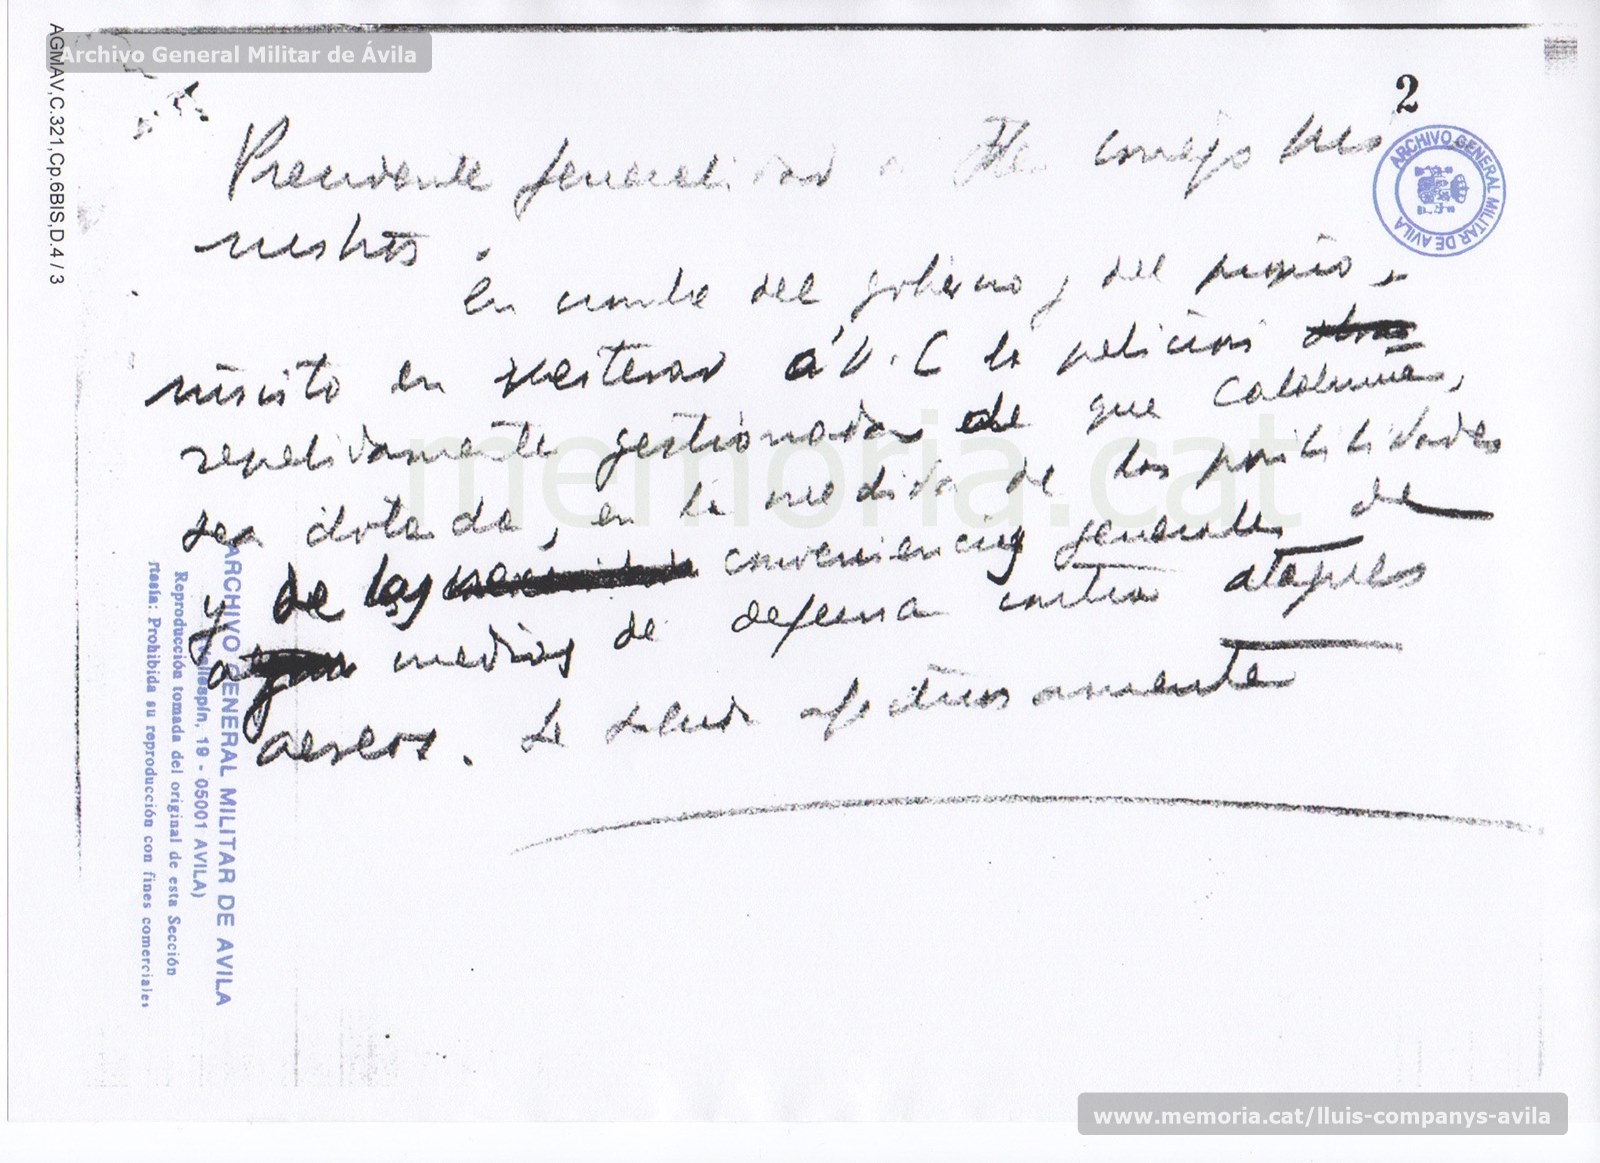 Archivo General Militar de Ávila
AGMAV,C.321,Cp.6BIS,D.4 / 3
2
ARCHIVO GENERAL MILITAR DE AVILA
Presidente Generalidad a consejo
nistros.
En nombre del gobierno y del propio,
insisto en reiterar a V. E la peticion
repetidamente gestionada de que Cataluña,
sea dotada, en la medida de las posibilidades
y de las conveniencias generales de
medios de defensa contra ataques
aereos. Le saluda afectuosamente
ARCHIVO GENERAL MILITAR DE AVILA
19 - 05001 AVILA)
Reproducción tomada del original de esta Sección
Prohibida su reproducción con fines comerciales
memoria.cat
www.memoria.cat/lluis-companys-avila